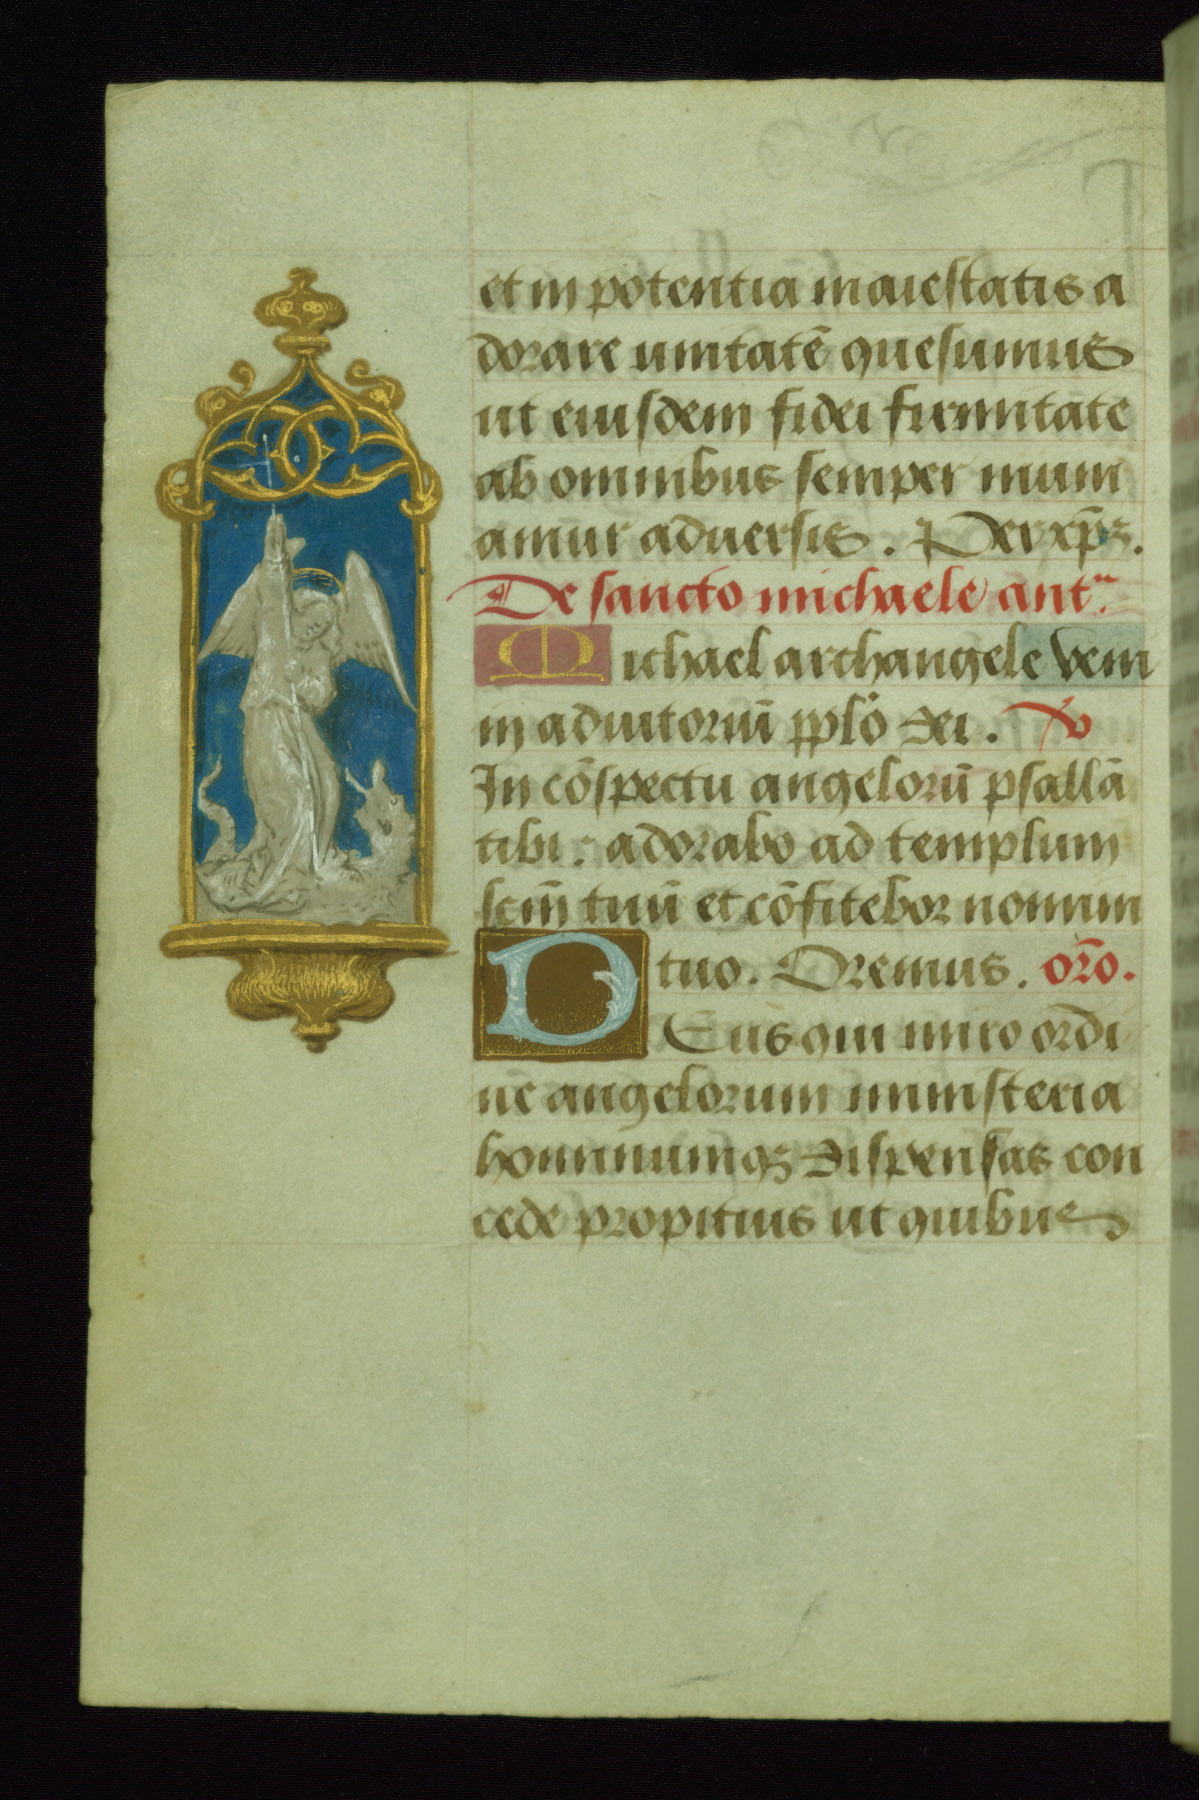 et in potentia maiestatis a
dorare unitatē quesumus
ut eiusdem fidei firmitate
ab omnibus semper muni
amur adversis. Per xp̄ʒ.
De sancto michaele ant.
Michael archangele veni
in adiutoriū pplō dei. V
In cōspectu angelorū psallā
tibi: adorabo ad templum
scm̄ tuū et cōfitebor nomini
tuo. Oremus. orō.
DEus qui miro ordi
ne angelorum ministeria
hominumqʒ dispensas con
cede propitius ut quibus